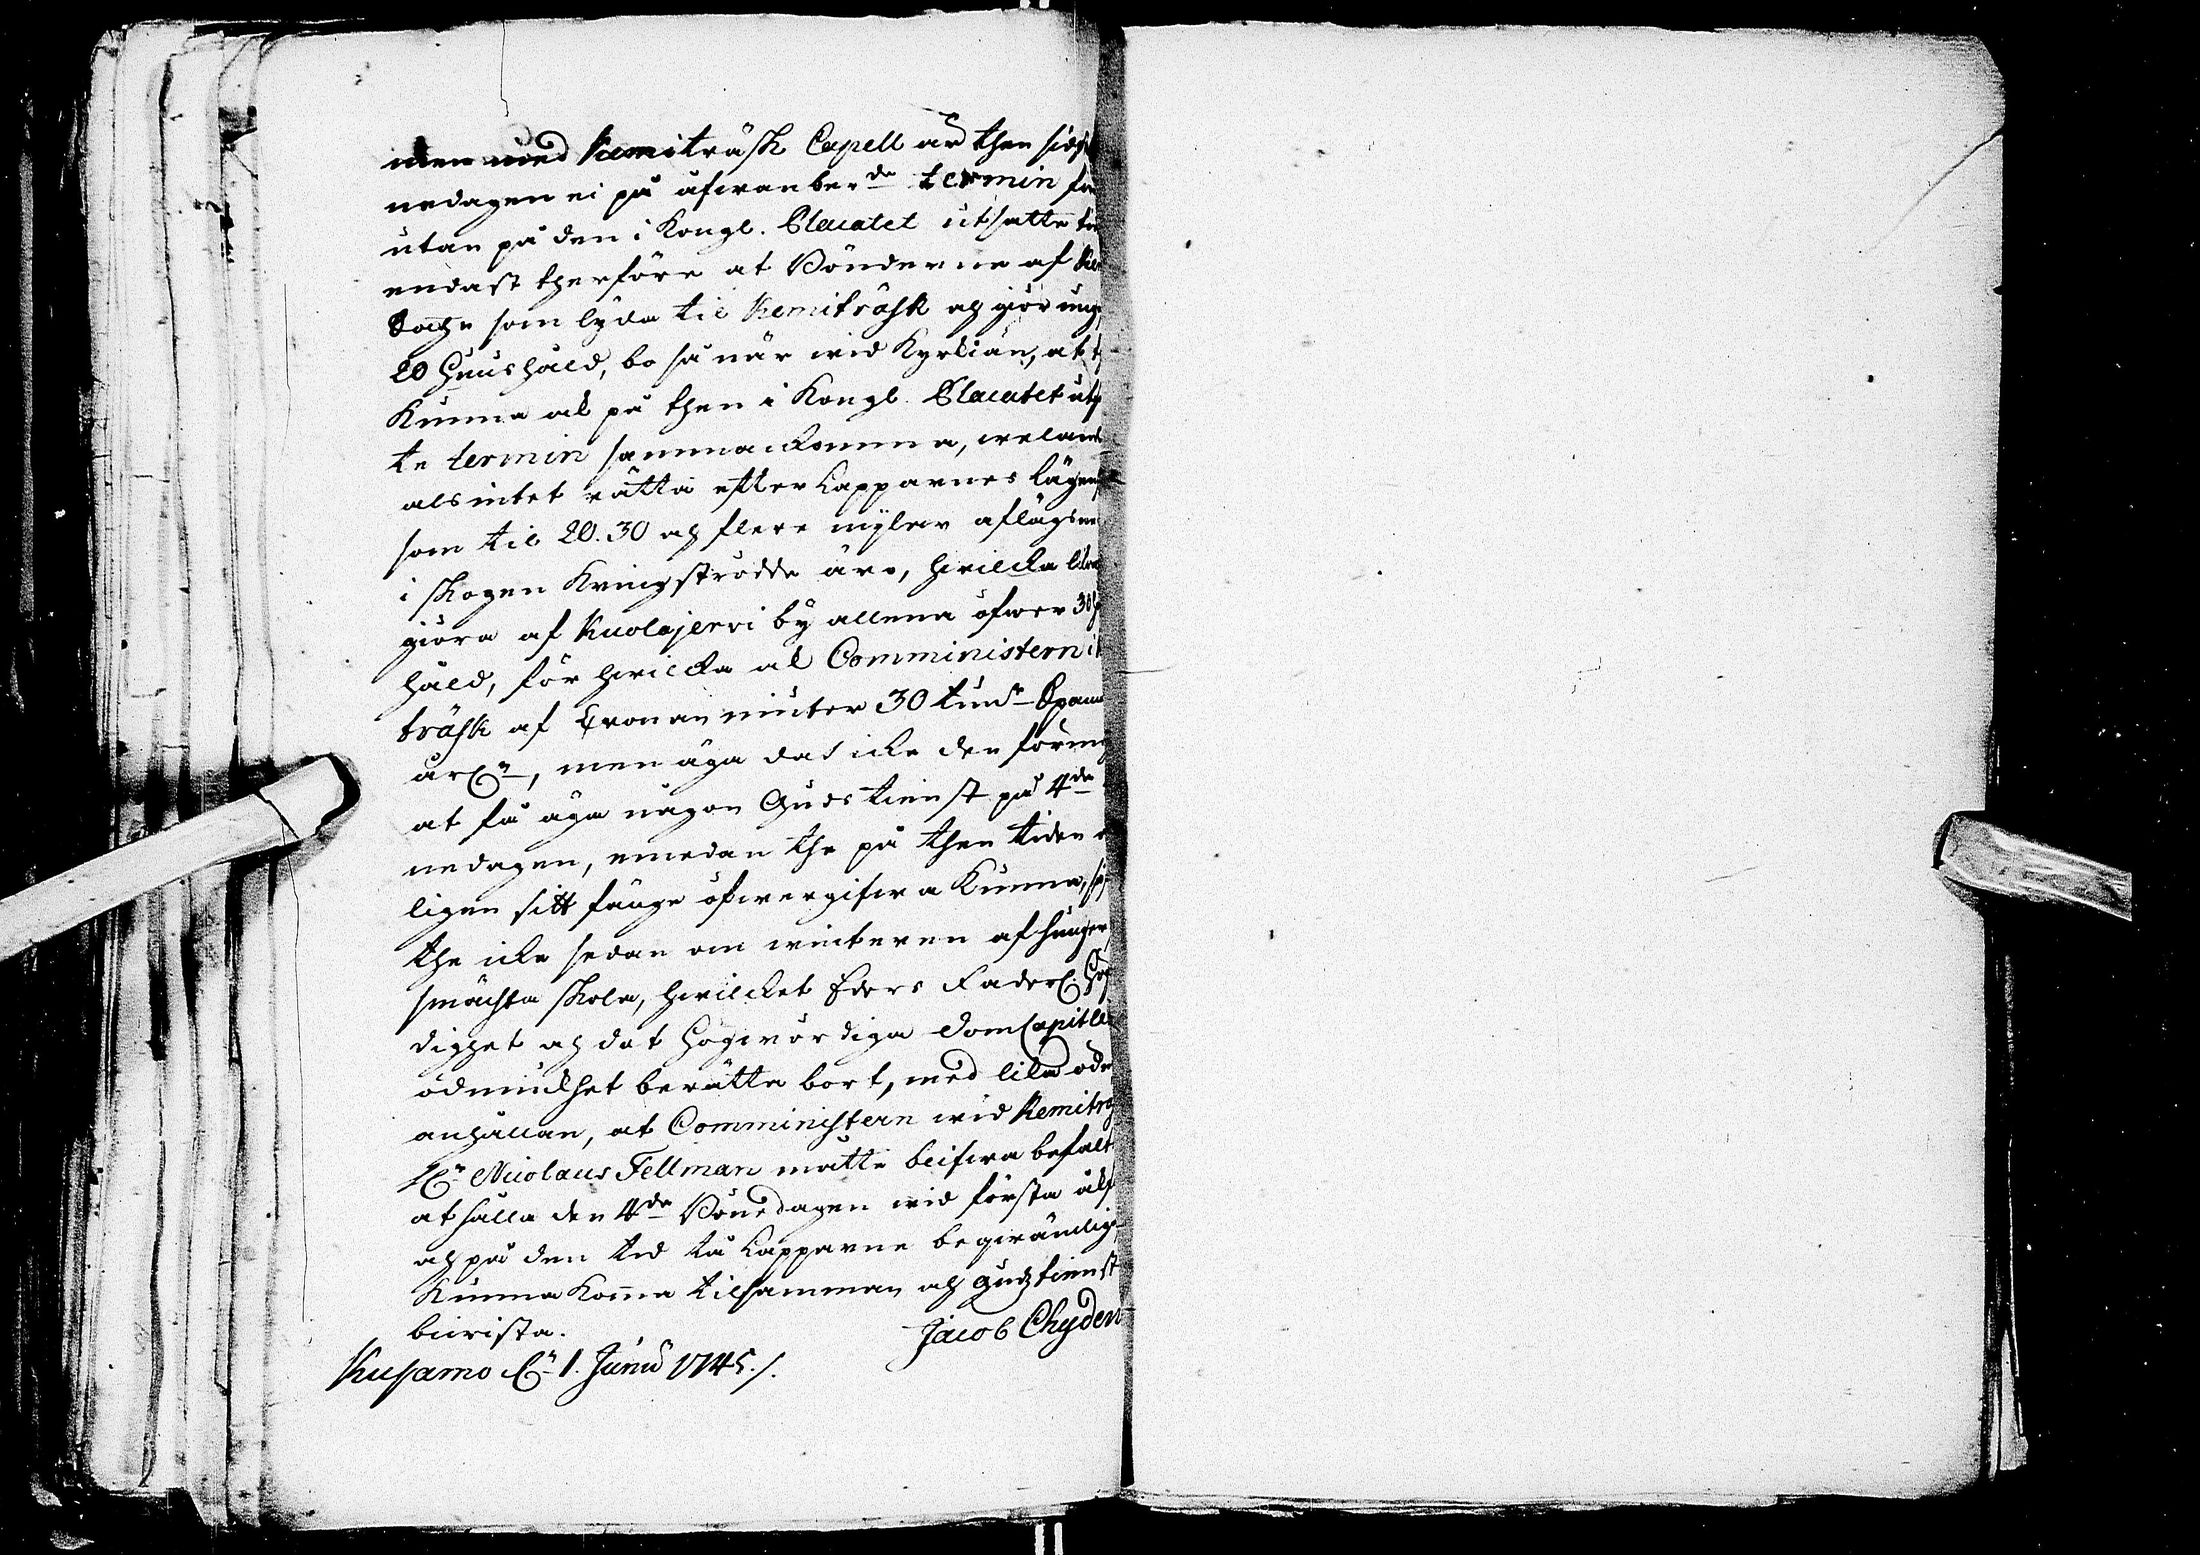 men wed Kemiträsk Capell är then sids
nedagen ei på åfwanber:de termin
utan på den i Kongl. Placatet utsatte
endast therföre at Bönderne af
Sochn som lyda til Kemiträsk och giör
20 Huushåld, bo så när wid Kyrkian, at
Kunna all på then i Kongl. Placatet
te termin samma komma,
alsintet rätta efter Lapparnes
som til 20. 30 och flere mylar aflägsne
i skogen Kringströdde äro, hwilcka
giöra af Kuolajerwi by allena öfwer 30
håld, för hwilcka al Comministern i
träsk af Cronan niuter 30 tun:r
årl:n, men äga dat icke den förmå
at få äga någon Guds tienst på 4:de
nedagen, emedan the på then tiden
ligen sitt fånge öfwergifwa Kunna,
the icke sedan om winteren af hunger
smächta skola, hwilcket Eders Faderl.
dighet och dat Högwördiga DomCapitlet
ödmiukhet berätta bort, med lika ödm
anhållan, at Comministern wid Kemitr
H:r Nicolaus Fellman måtte blifwa befalt
at hålla den 4:de Bönedagen wid första
och på den tid tå Lapparne beqwämlig
Kunna Komma tilsamman och gudztienst
biwista.
Jacob Chyden
Kusamo d:n 1. Junii 1745./.